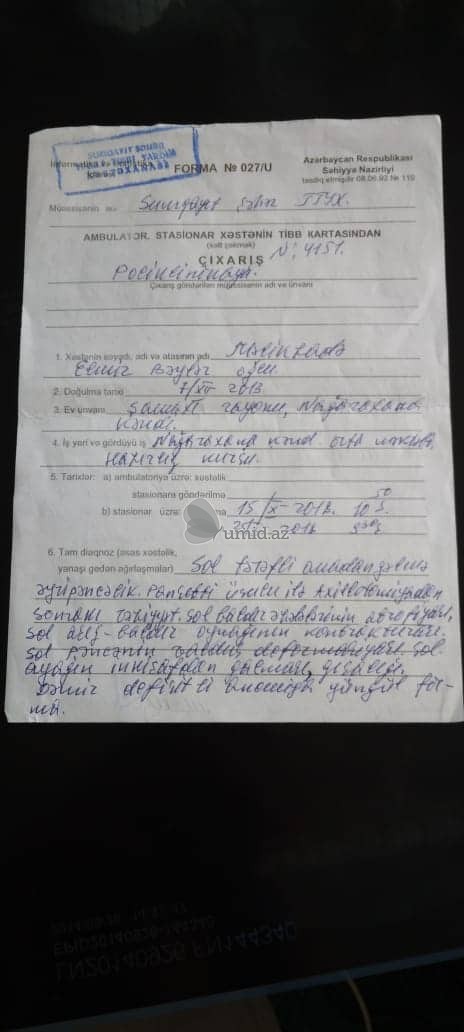 SUMQAYIT ŞƏHƏR
FORMA № 027/U
Azərbaycan Respublikası
Səhiyyə Nazirliyi
təsdiq etmişdir 08.06.92 № 119
Müəssisənin adı Sumqayıt şəhər TTYX.
AMBULATOR, STASIONAR XƏSTƏNİN TİBB KARTASINDAN
(xətt çəkmək)
ÇIXARIŞ N: 4151.
Çıxarış göndərilən müəssisənin adı və ünvanı
1. Xəstənin soyadı, adı və atasının adı
Elmir Bəylər oğlu
2. Doğulma tarixi 7/XII 2013
3. Ev ünvanı Şamaxı rayonu, Nağaraxana
kəndi.
4. İş yeri və gördüyü iş Nağaraxana kənd orta məktəb,
5. Tarixlər: a) ambulatoriya üzrə: xəstəlik
stasionara göndərilmə
b) stasionar üzrə: 15/IX-201 10 50
umid.az
6. Tam diaqnoz (əsas xəstəlik,
yanaşı gedən ağırlaşmalar) Sol tərəfli anadangəlmə
əyripəncəlik. Ponseti üsulu ilə Axillotomiyadan
sonrakı vəziyyət. Sol baldır əzələlərinin atrofiyası,
sol aşıq-baldır oynağının kontrakturası.
sol pəncənin valqus deformasiyası, sol
ayağın inkişafdan qalması, qısalığı.
Dəmir defisitli anemiya yüngül for-
ma.
LN20140926 FN144340